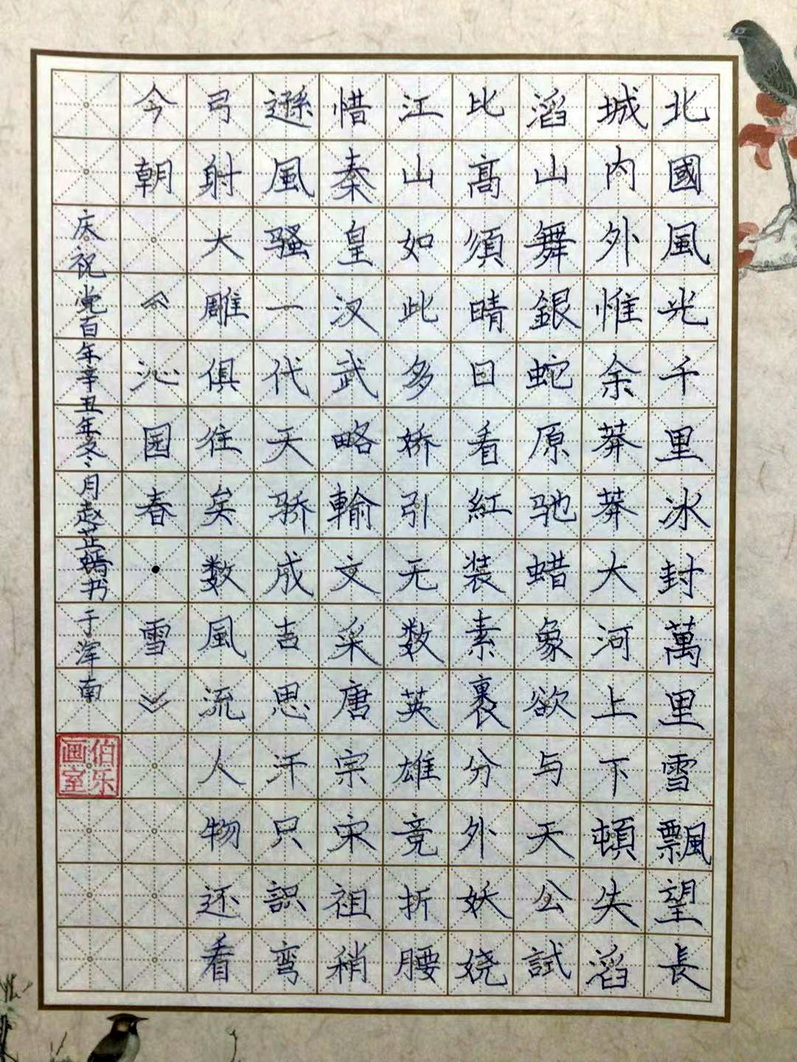 北國風光千里冰封萬里雪飄望長
城内外惟余莽莽大河上下頓失滔
滔山舞銀蛇原驰蜡象欲与天公試
比高須晴日看紅装素裹分外妖娆
江山如此多娇引无数英雄竞折腰
惜秦皇汉武略輸文采唐宗宋祖稍
遜風骚一代天骄成吉思汗只識弯
弓射大雕俱往矣数風流人物还看
今朝 《沁园春•雪》
庆祝党百年辛丑年冬月赵芷嫣书于浑南
伯乐画室